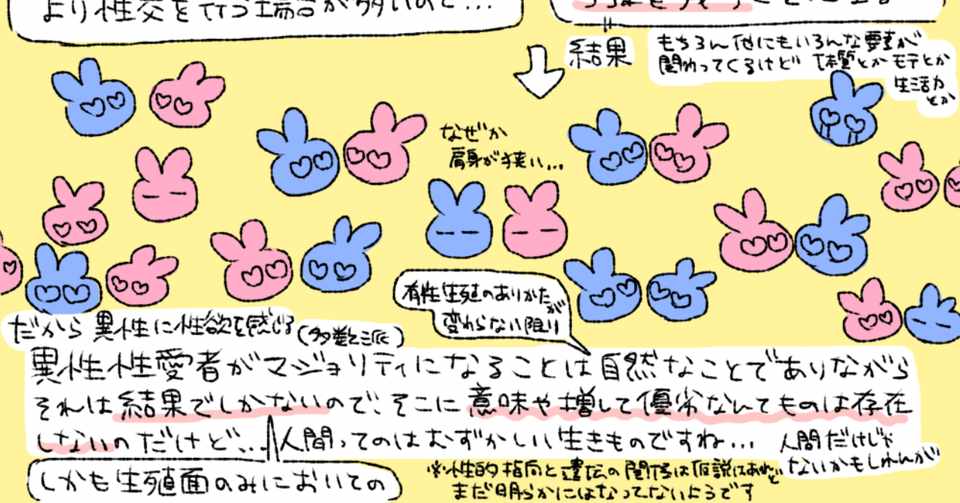 より性交を行う場合が多いので…
結果
もちろん他にもいろんな要素が
関わってくるけど 体質とかモテとか
生活力
とか
なぜか
肩身が狭い…
有性生殖のありかたが
変わらない限り
だから異性に性欲を感じる
(多数派)
異性性愛者がマジョリティになることは自然なことでありながら
それは結果でしかないので、そこに意味や増して優劣なんてものは存在
しないのだけど…人間ってのはむずかしい生きものですね…
人間だけじゃ
ないかもしれんが
しかも生殖面のみにおいての
※性的指向と遺伝の関係は仮説はあれど
まだ明らかにはなってないようです